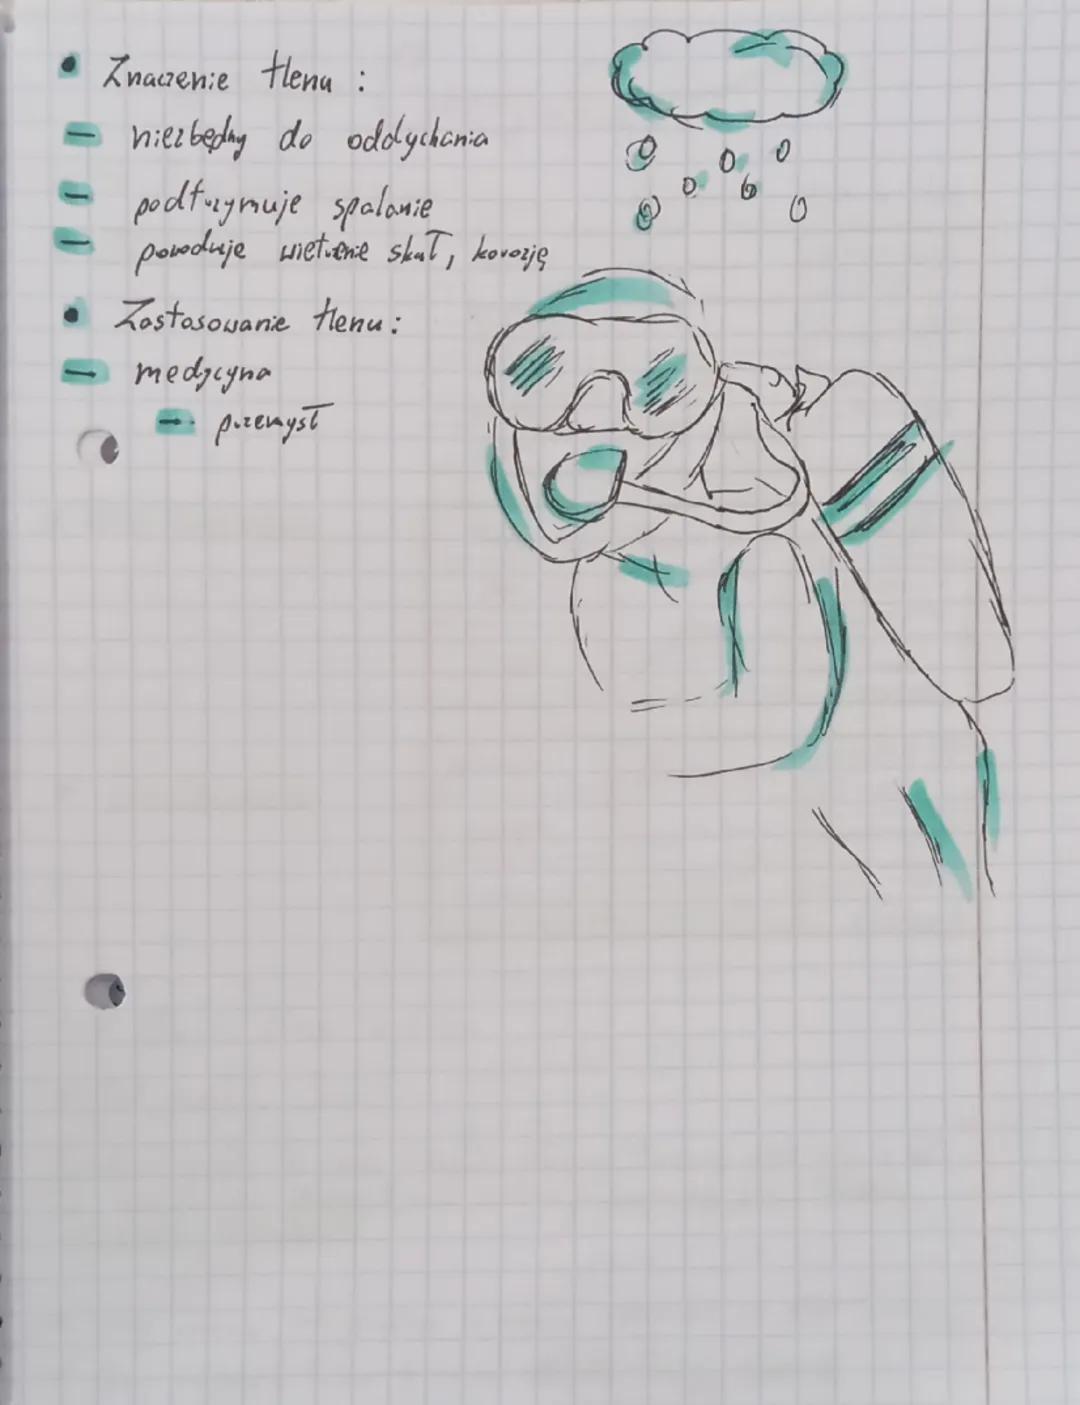 • Znaczenie tlenu :
– niezbędny do oddychania
– podtrzymuje spalanie
– powoduje wietrzenie skał, korozję
• Zastosowanie tlenu :
– medycyna
– przemysł